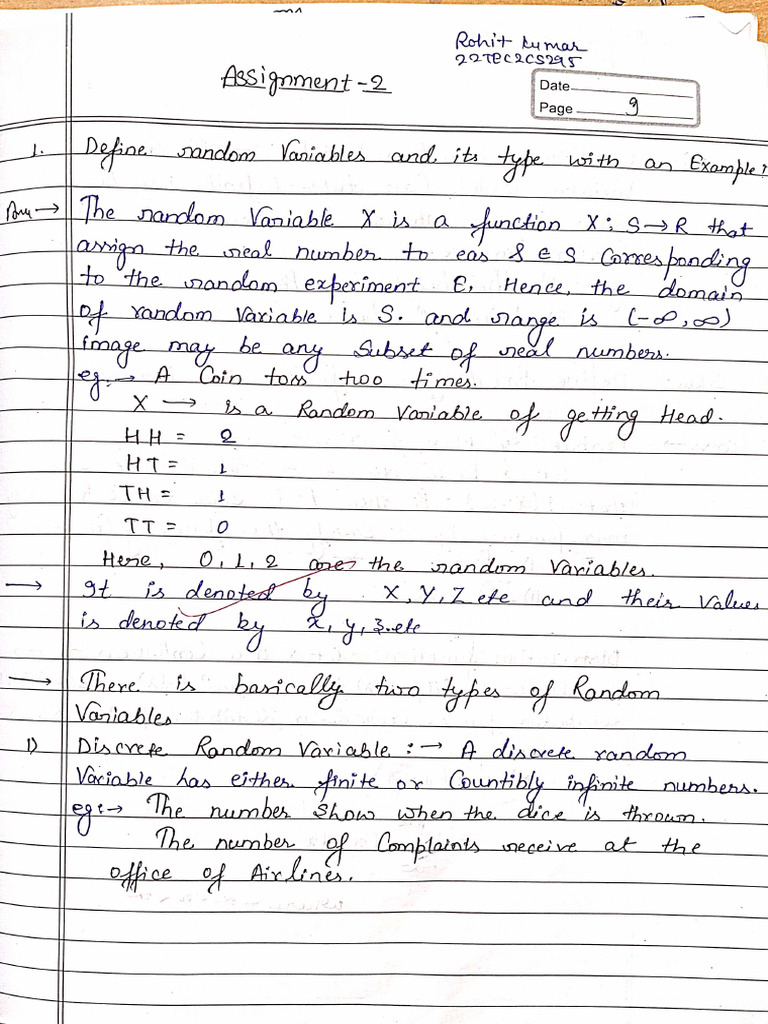 Rohit Kumar
22TEC2CS295
Assignment - 2
Date
Page 9
1. Define random Variables and its type with an Example?
Ans → The random Variable X is a function X: S→R that
assign the real number to eas S ∈ S Corresponding
to the random experiment E, Hence, the domain
of random Variable is S. and range is (-∞,∞)
image may be any Subset of real numbers.
eg:→ A Coin toss two times.
X → is a Random Variable of getting Head.
HH = 2
HT = 1
TH = 1
TT = 0
Here, 0, 1, 2 are the random Variables.
→ It is denoted by X, Y, Z etc and their Values
is denoted by x, y, z.etc
→ There is basically two types of Random
Variables
1) Discrete Random Variable :→ A discrete random
Variable has either finite or Countibly infinite numbers.
eg:→ The number Show when the dice is thrown.
The number of Complaints receive at the
office of Airlines.